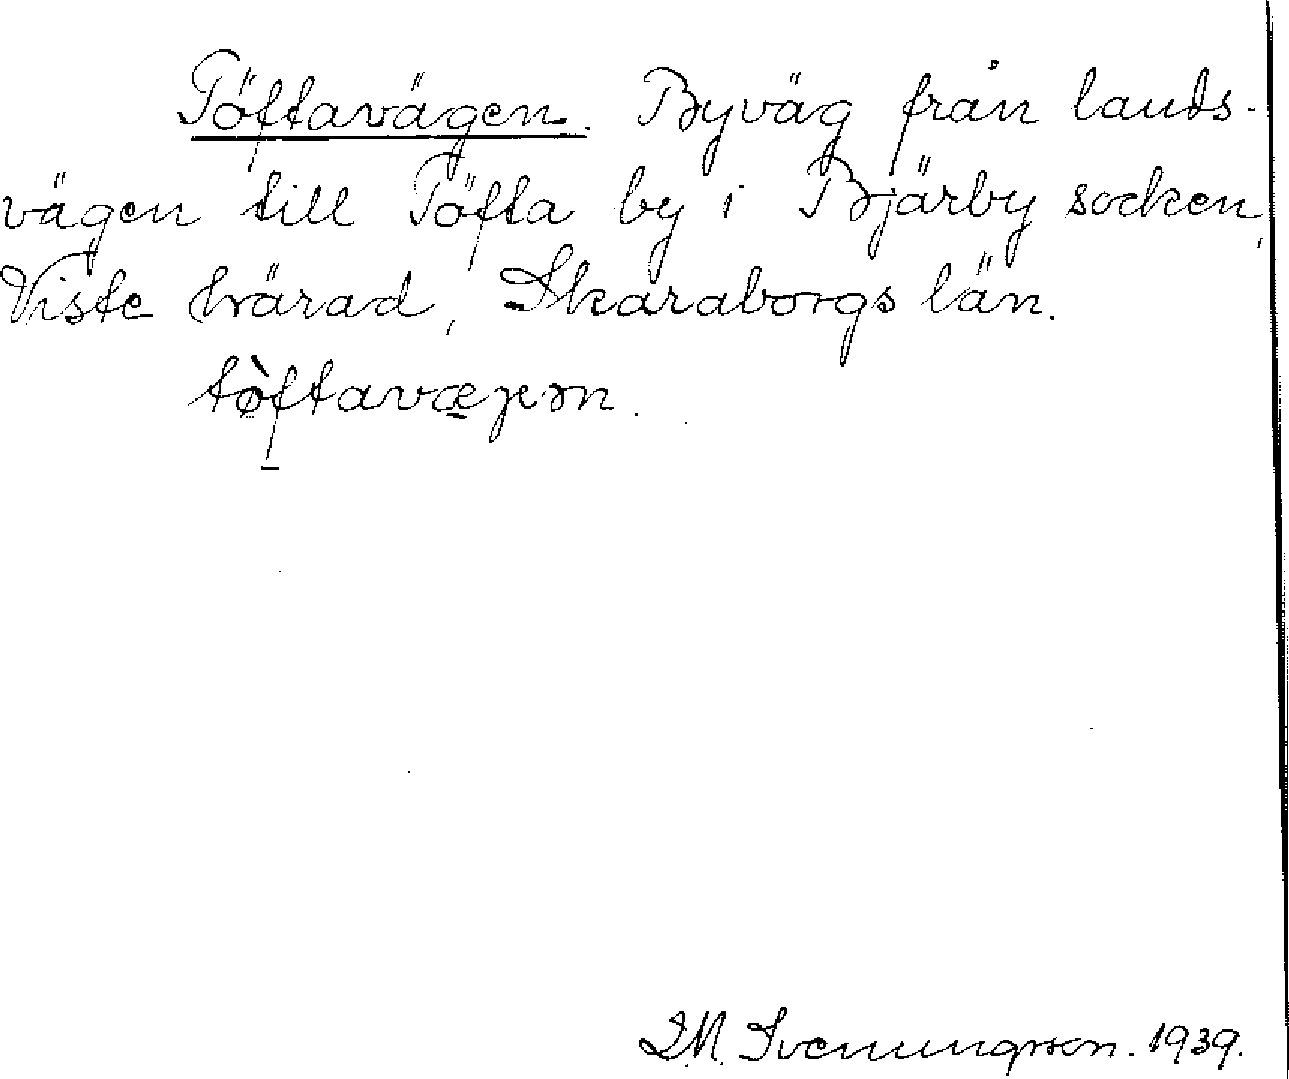 Töftavägen. Byväg från lands-
vägen till Töfta by i Bjärby socken,
Viste härad, Skaraborgs län.
tø̀ftavæɡən.
S.M. Svenungsson. 1939.